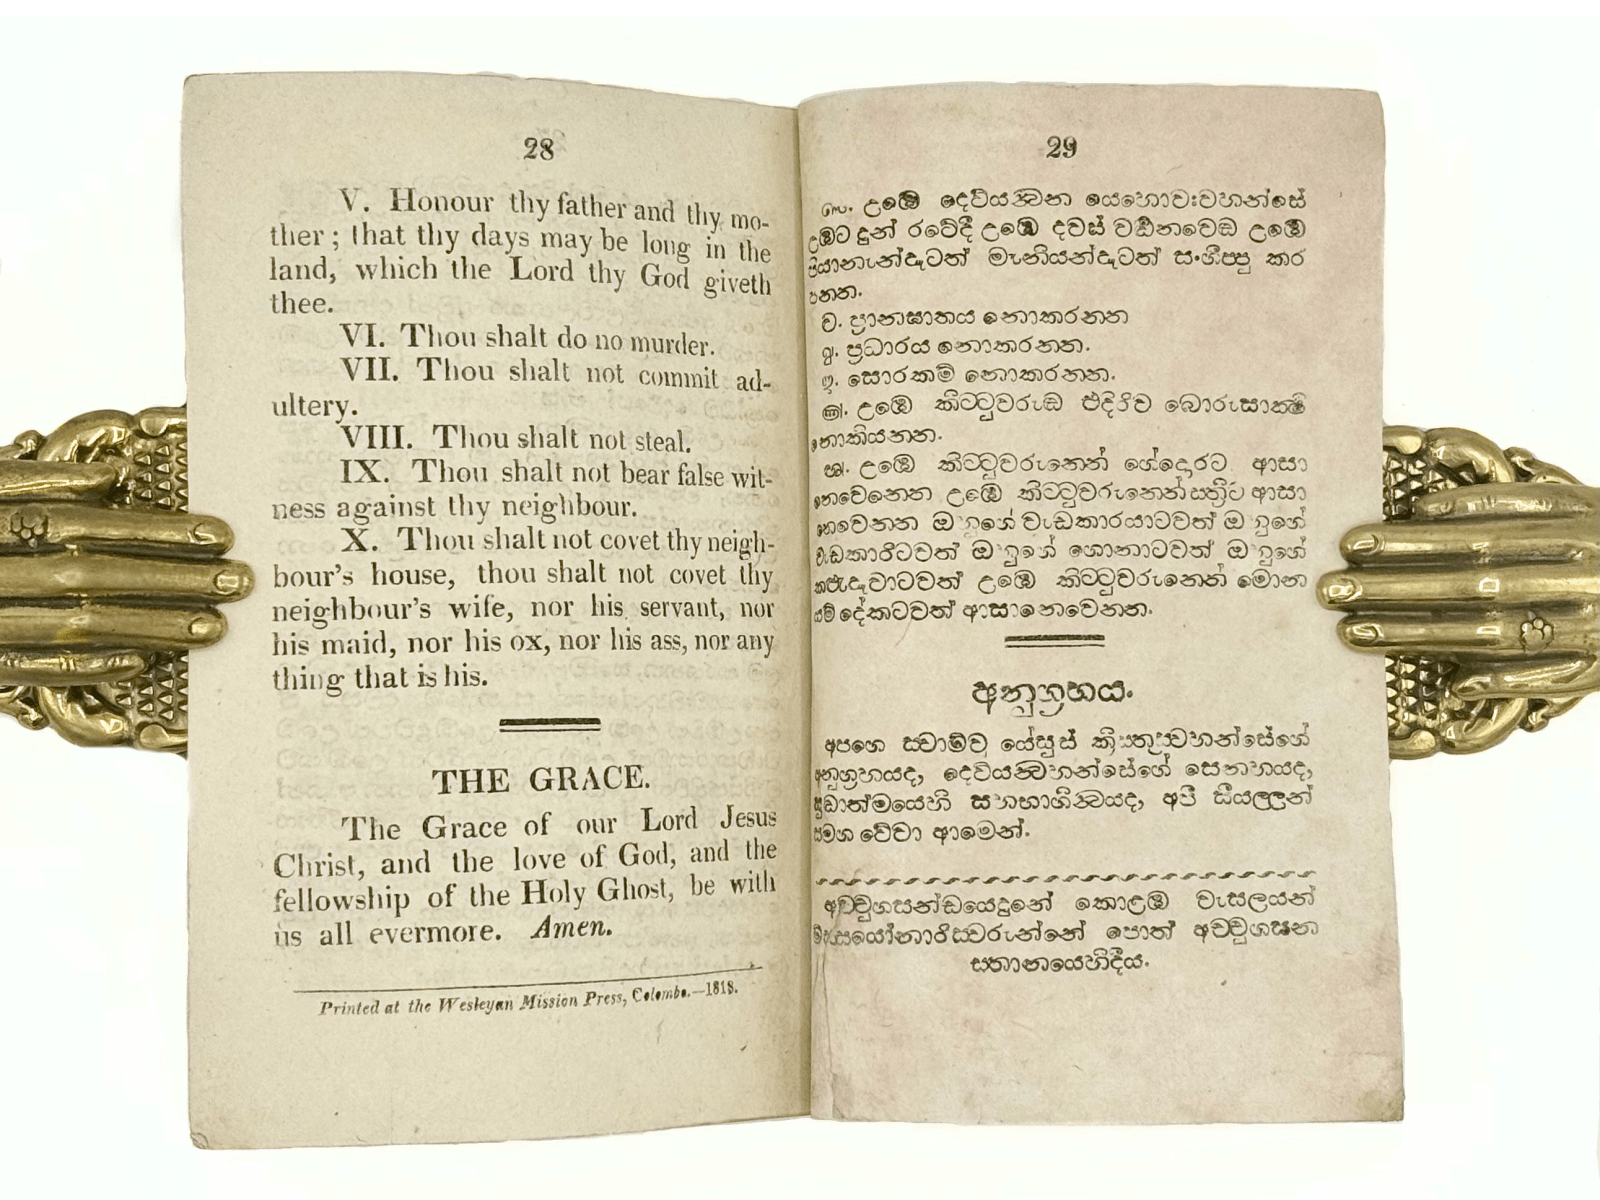 28
V. Honour thy father and thy mo-
ther; that thy days may be long in the
land, which the Lord thy God giveth
thee.
VI. Thou shalt do no murder.
VII. Thou shalt not commit ad-
ultery.
VIII. Thou shalt not steal.
IX. Thou shalt not bear false wit-
ness against thy neighbour.
X. Thou shalt not covet thy neigh-
bour's house, thou shalt not covet thy
neighbour's wife, nor his servant, nor
his maid, nor his ox, nor his ass, nor any
thing that is his.
THE GRACE.
The Grace of our Lord Jesus
Christ, and the love of God, and the
fellowship of the Holy Ghost, be with
us all evermore. Amen.
Printed at the Wesleyan Mission Press, Colombo.—1818.
29
උඹේ දෙවියන්වන යෙහොවඃවහන්සේ
උඹට දුන් රටේදී උඹේ දවස් වර්‍ධනවෙඬ උඹේ
පියානැන්දෑටත් මෑනියන්දෑටත් සංගීප්පු කර
පනන.
ප්‍රානඝාතය නොකරනන
ප්‍රධාරය නොකරනන.
සොරකම් නොකරනන.
උඹේ කිට්ටුවරුඬ එදිරිව බොරුසාක්ෂි
නොකියනන.
උඹේ කිට්ටුවරුනෙන් ගේදොරට ආසා
නෙවෙනෙන උඹේ කිට්ටුවරුනෙන් ස්ත්‍රීට ආසා
නෙවෙනන ඔහුගේ වැඩකාරයාටවත් ඔහුගේ
වැඩකාරිටවත් ඔහුගේ ගොනාටවත් ඔහුගේ
කළුදෑවාටවත් උඹේ කිට්ටුවරුනෙන් මොන
යම් දේකටවත් ආසානෙවෙනන.
අනුග්‍රහය.
අපගෙ ස්වාමිවූ යේසුස් ක්‍රිස්තුස්වහන්සේගේ
අනුග්‍රහයද, දෙවියන්වහන්සේගේ සෙනහයද,
සුඬාත්මයෙහි සහභාගින්වයද, අපි සියල්ලන්
සමග වේවා ආමෙන්.
අච්චුගසන්ඩයෙදුනේ කොළඹ වැසලයන්
මිස්සයෝනාරිස්වරුන්නේ පොත් අච්චුගසන
ස්තානයෙහිදීය.